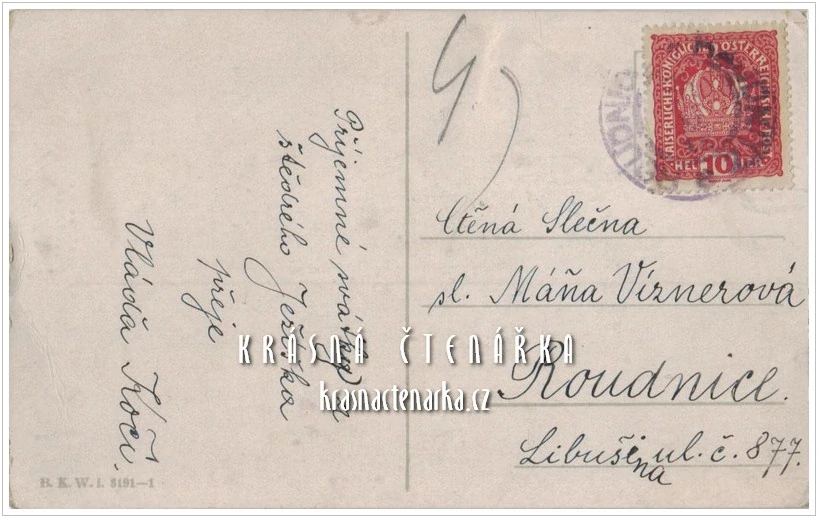 Příjemné svátky a
štědrého Ježíška
přeje
Vláďa Kočí.
KAISERLICHE KÖNIGLICHE ÖSTERREICHISCHE POST
HELLER 10
Ctěná Slečna
sl. Máňa Víznerová
Roudnice.
Libušina ul. č. 877.
KRÁSNÁ ČTENÁŘKA
krasnactenarka.cz
B. K. W. I. 3191—1